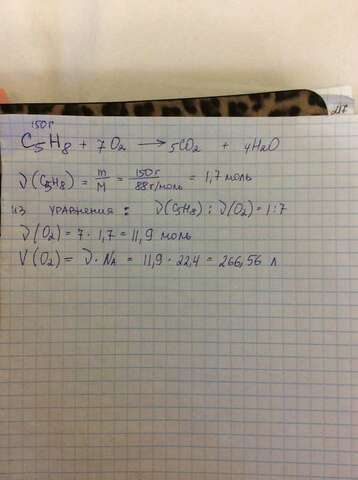 150г
C₅H₈ + 7O₂ → 5CO₂ + 4H₂O
ν(C₅H₈) = m/M = 150г/88г/моль = 1,7 моль
из уравнения: ν(C₅H₈) : ν(O₂) = 1:7
ν(O₂) = 7 · 1,7 = 11,9 моль
V(O₂) = ν · Nₐ = 11,9 · 22,4 = 266,56 л